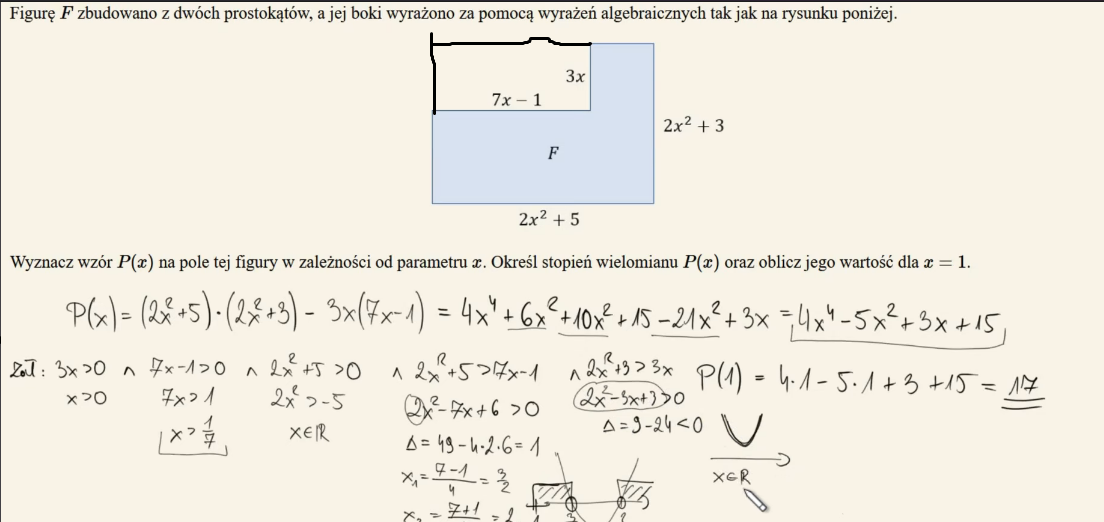 Figurę F zbudowano z dwóch prostokątów, a jej boki wyrażono za pomocą wyrażeń algebraicznych tak jak na rysunku poniżej.
3x
7x − 1
2x² + 3
F
2x² + 5
Wyznacz wzór P(x) na pole tej figury w zależności od parametru x. Określ stopień wielomianu P(x) oraz oblicz jego wartość dla x = 1.
P(x) = (2x²+5)·(2x²+3) − 3x(7x−1) = 4x⁴ + 6x² + 10x² + 15 − 21x² + 3x = 4x⁴ − 5x² + 3x + 15
Zał: 3x>0 ∧ 7x−1>0 ∧ 2x²+5>0 ∧ 2x²+5>7x−1 ∧ 2x²+3>3x P(1) = 4·1 − 5·1 + 3 + 15 = 17
x>0 7x>1 2x²>−5 2x²−7x+6>0 2x²−3x+3>0
x>1/7 x∈ℝ Δ = 49−4·2·6 = 1 Δ = 9−24<0
x₁ = (7−1)/4 = 3/2 x∈ℝ
x₂ = (7+1)/ = 2